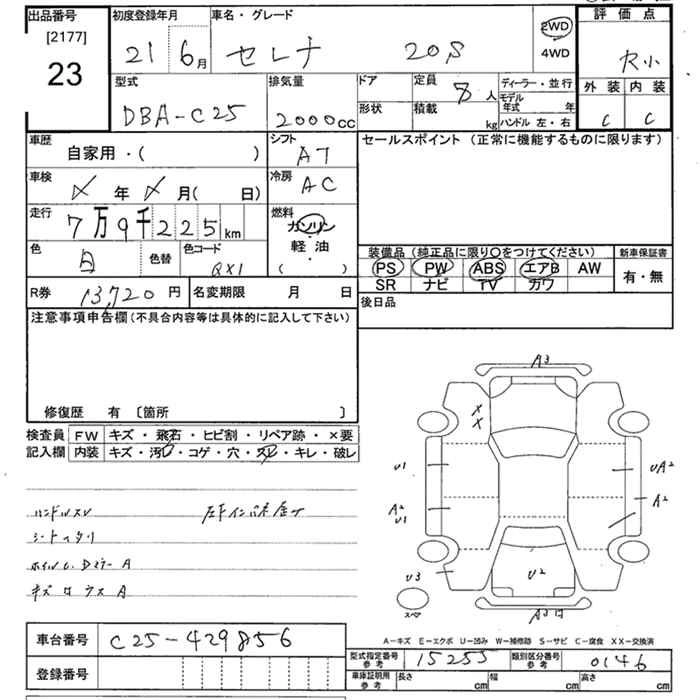 出品番号 初度登録年月 車名・グレード 評価点
[2177] 21 6月 セレナ 20S 2WD
23 4WD
型式 排気量 ドア 定員 8人 ディーラー・並行 外装 内装
DBA-C25 2000cc 形状 積載 kg モデル年式 年 C C
ハンドル 左・右
車歴 シフト セールスポイント (正常に機能するものに限ります)
自家用・( ) AT
車検 冷房
年 月( 日) AC
走行 燃料
7万9千225km ガソリン
軽・油
色 白 色替 色コード QX1 ( )
装備品 (純正品に限り○をつけてください) 新車保証書
PS PW ABS エアB AW 有・無
SR ナビ TV カワ
R券 13,720円 名変期限 月 日 後日品
注意事項申告欄 (不具合内容等は具体的に記入して下さい)
修復歴 有 〔箇所 〕
検査員 FW キズ・飛石・ヒビ割・リペア跡・×要
記入欄 内装 キズ・汚レ・コゲ・穴・スレ・キレ・破レ
ハンドルスレ
A3
X
X
U1 UA2
A2 A2
U1
U3 U2
スペア
A-キズ E-エクボ U-凹み W-補修跡 S-サビ C-腐食 XX-交換済
車台番号 C25-429856
登録番号
型式指定番号 参考 15255 類別区分番号 参考 0146
車庫証明用 参考 長さ cm 幅 cm 高さ cm